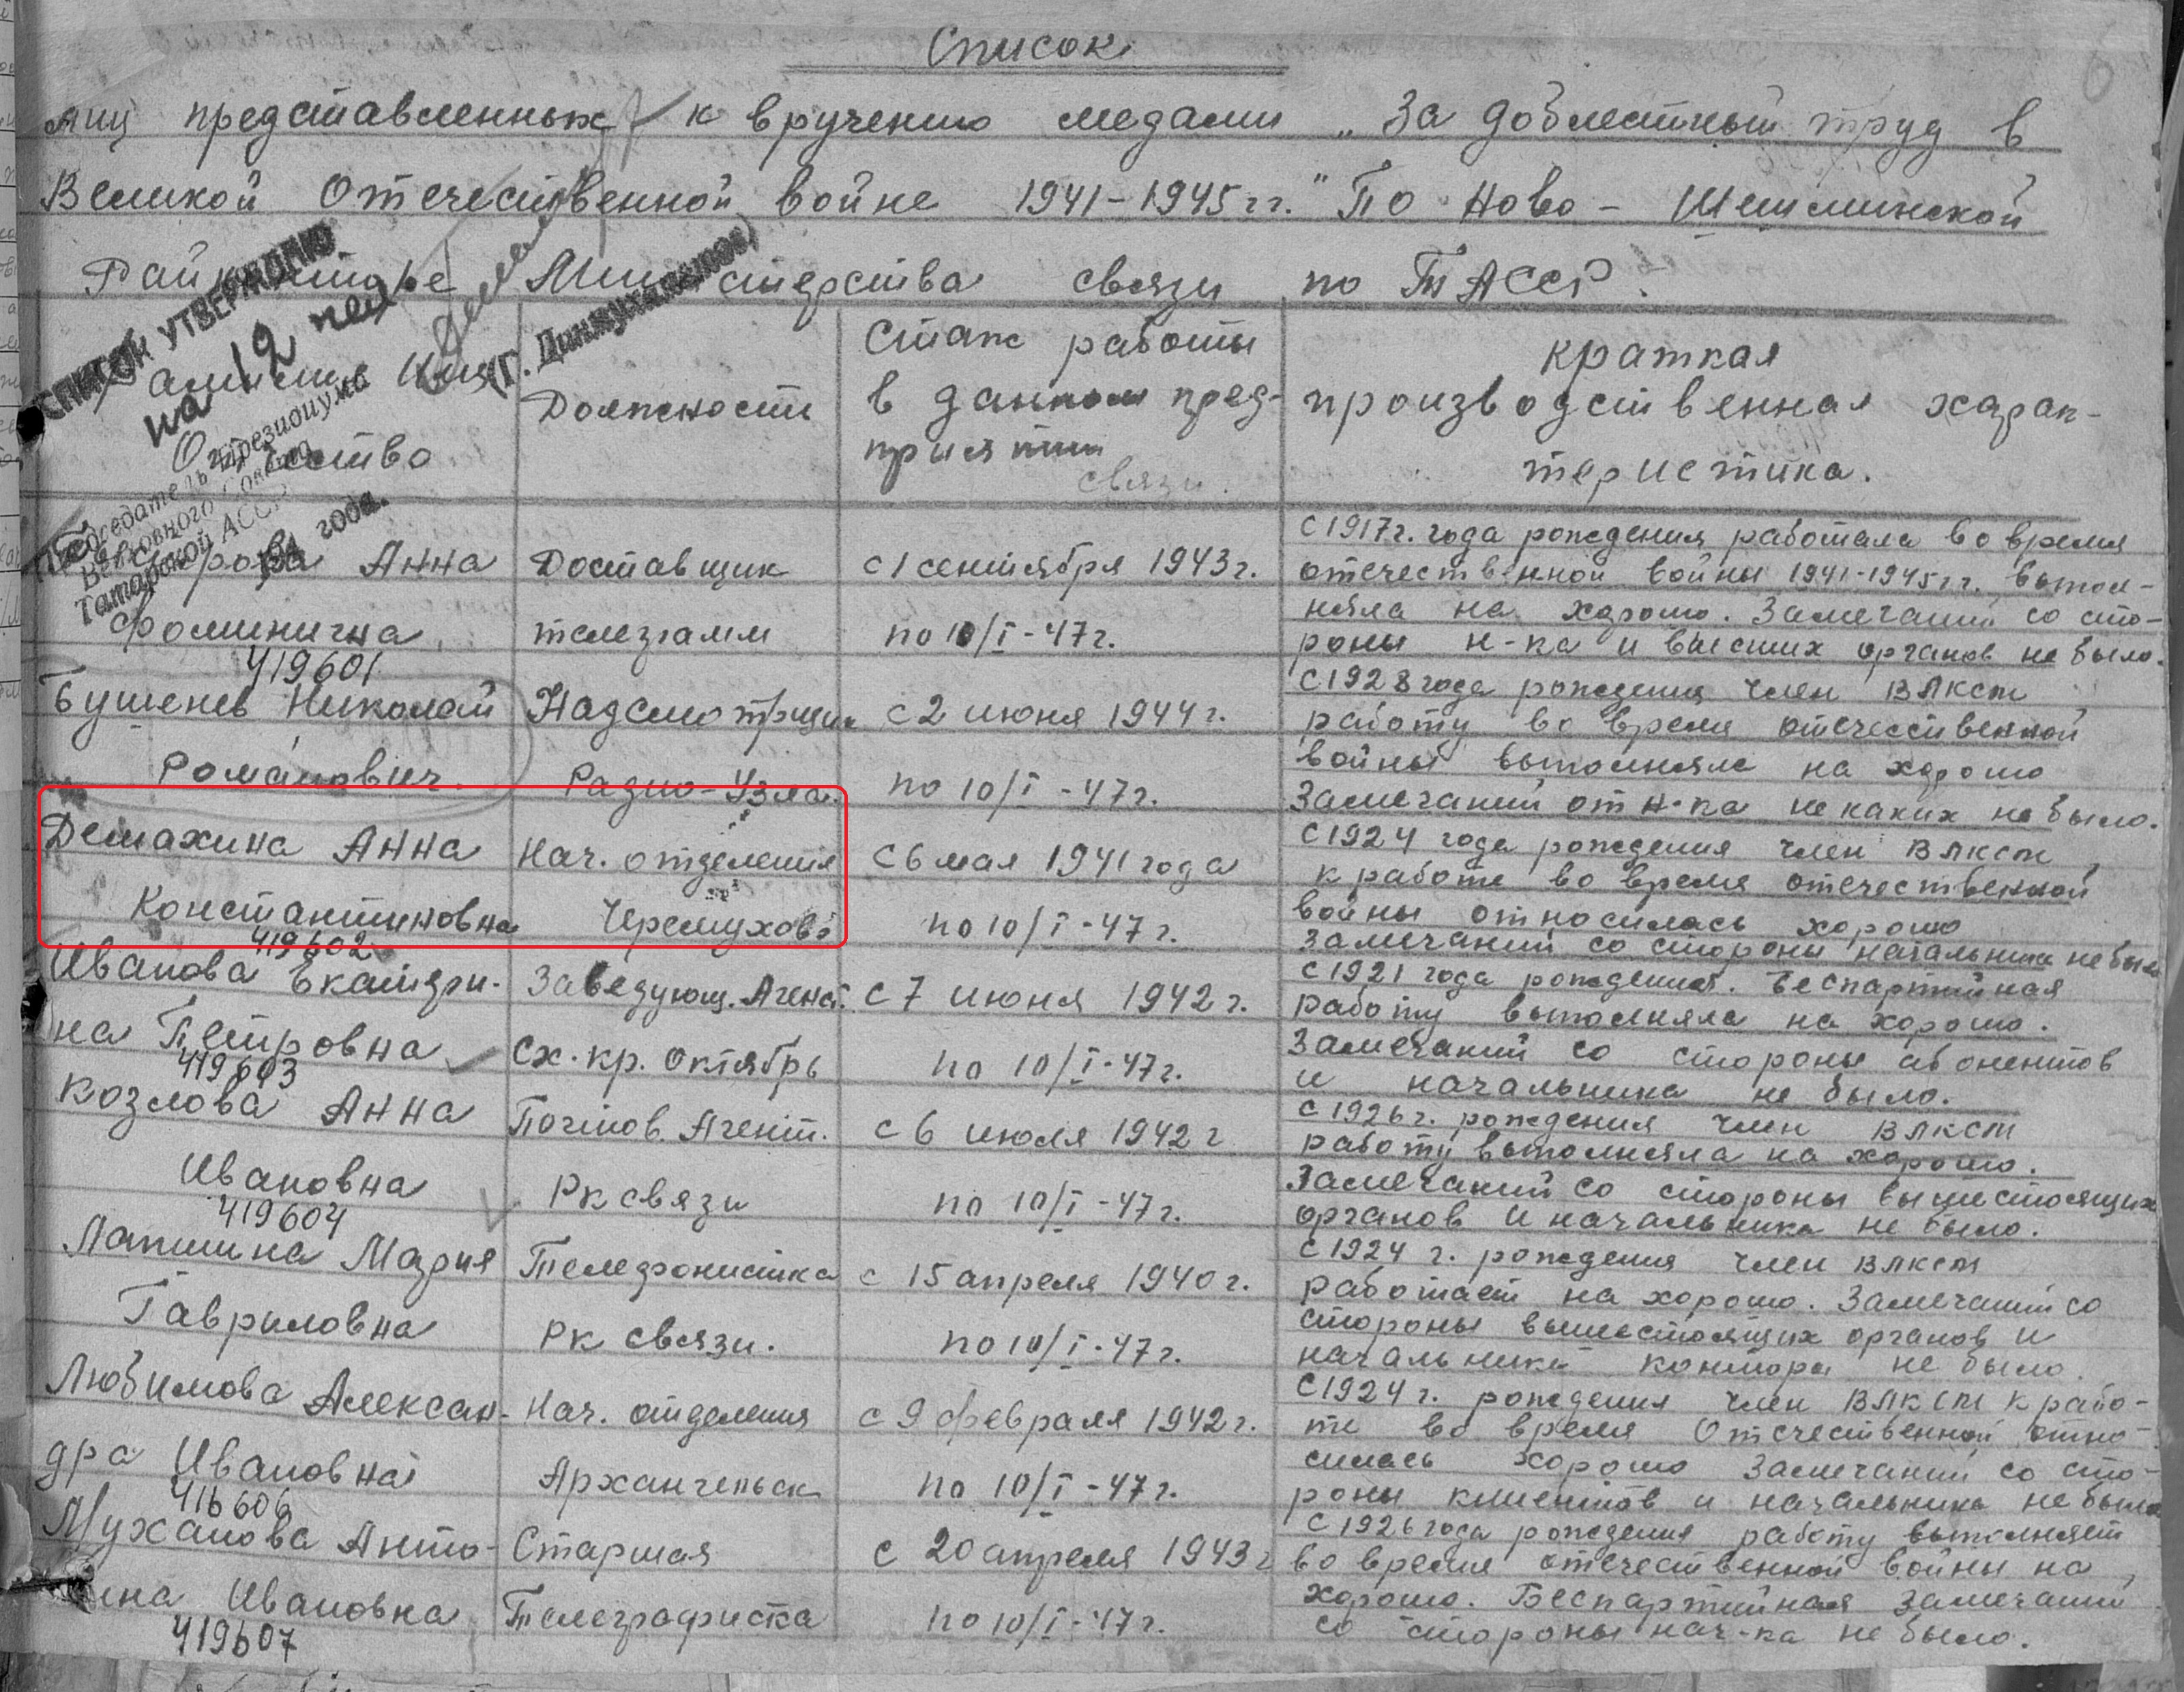 Список
лиц представленных к вручению медали „За доблестный труд в
Великой Отечественной войне 1941-1945 гг." По Ново - Шешминской
Райконторе Министерства связи по ТАССР.
СПИСОК УТВЕРЖДАЮ
на 12 чел
Председатель Президиума
Верховного Совета
Татарской АССР
(Г. Динмухаметов)
194 года.
Фамилия Имя
Отчество
Должность
Стаж работы
в данном пред-
приятии
связи.
Краткая
производственная харак-
теристика.
Анна
Фоминична
419601
Доставщик
телеграмм
с 1 сентября 1943 г.
по 10/I-47 г.
с 1917 г. года рождения работала во время
отечественной войны 1941-1945 гг. выпол-
няла на хорошо. Замечаний со сто-
роны н-ка и высших органов не было.
Бушенев Николай
Романович.
Надсмотрщик
Радио-Узла.
с 2 июня 1944 г.
по 10/I-47 г.
с 1928 года рождения член ВЛКСМ
работу во время отечественной
войны выполняла на хорошо
Замечаний от н-ка не каких не было.
Демахина Анна
Константиновна
419602
Нач. отделения
Черемухово
с 6 мая 1941 года
по 10/I-47 г.
с 1924 года рождения член ВЛКСМ,
к работе во время отечественной
войны относилась хорошо
Замечаний со стороны начальника не было
Иванова Екатери-
на Петровна
419603
Заведующ. Агент.
Сх. кр. Октябрь
с 7 июня 1942 г.
по 10/I-47 г.
с 1921 года рождения. Беспартийная
работу выполняла на хорошо.
Замечаний со стороны абонентов
и начальника не было.
Козлова Анна
Ивановна
419604
Почтов. Агент.
Рк связи
с 6 июля 1942 г
по 10/I-47 г.
с 1926 г. рождения член ВЛКСМ
работу выполняла на хорошо.
Замечаний со стороны вышестоящих
органов и начальника не было.
Лапшина Мария
Гавриловна
Телефонистка
Рк связи.
с 15 апреля 1940 г.
по 10/I-47 г.
с 1924 г. рождения член ВЛКСМ
работает на хорошо. Замечаний со
стороны вышестоящих органов и
начальника конторы не было.
Любимова Алексан-
дра Ивановна
416606
Нач. отделения
Архангельск
с 9 февраля 1942 г.
по 10/I-47 г.
с 1924 г. рождения член ВЛКСМ к рабо-
те во время Отечественной отно-
силась хорошо Замечаний со сто-
роны клиентов и начальника не было
Муханова Анто-
нина Ивановна
419607
Старшая
Телеграфистка
с 20 апреля 1943 г
по 10/I-47 г.
с 1926 года рождения работу выполняет
во время отечественной войны на
хорошо. Беспартийная Замечаний
со стороны нач-ка не было.